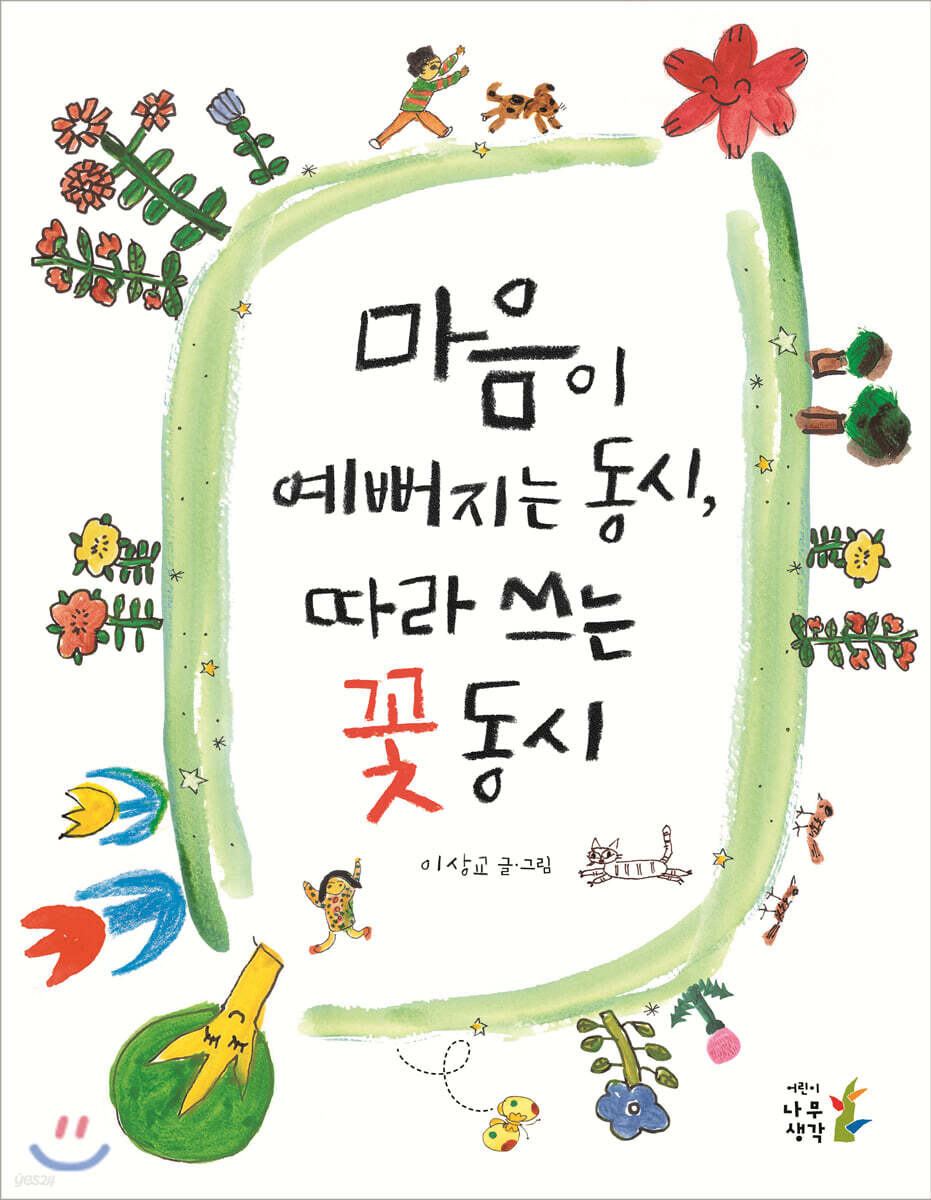 마음이
예뻐지는 동시,
따라 쓰는
꽃 동시
이상교 글·그림
어린이
나무
생각
yes24